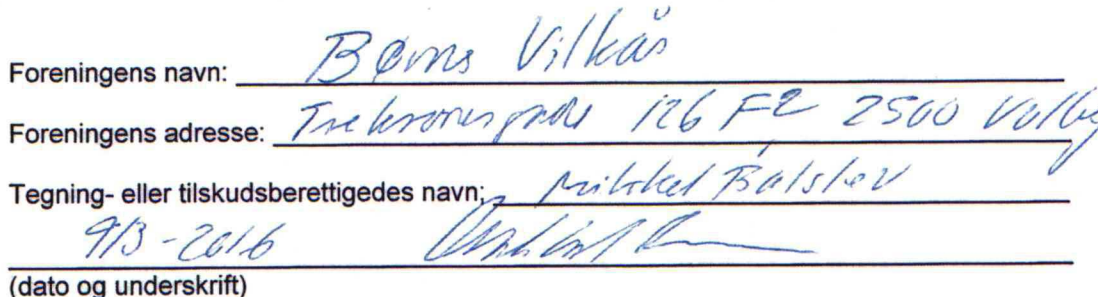 Foreningens navn: Børns Vilkår
Foreningens adresse: Trekronergade 126 F2 2500 Valby
Tegning- eller tilskudsberettigedes navn: Mikkel Balslev
9/3-2016
(dato og underskrift)